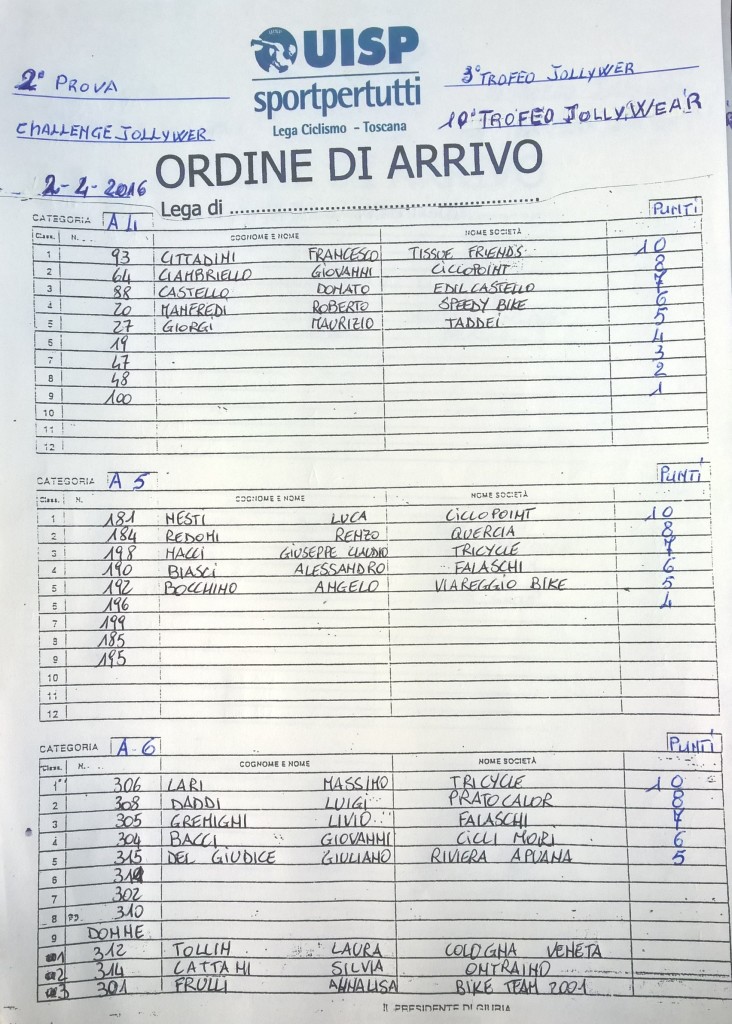 UISP
sportpertutti
Lega Ciclismo - Toscana
2ª PROVA
CHALLENGE JOLLYWER
3° TROFEO JOLLYWER
10° TROFEO JOLLYWEAR
2-4-2016
ORDINE DI ARRIVO
Lega di ..............................................
CATEGORIA A 4 PUNTI
Class. N. COGNOME E NOME NOME SOCIETÀ
1 93 CITTADINI FRANCESCO TISSUE FRIENDS 10
2 64 CIAMBRIELLO GIOVANNI CICLOPOINT 8
3 88 CASTELLO DONATO EDILCASTELLO 7
4 20 MANFREDI ROBERTO SPEEDY BIKE 6
5 27 GIORGI MAURIZIO TADDEI 5
6 19 4
7 47 3
8 48 2
9 100 1
10
11
12
CATEGORIA A 5 PUNTI
Class. N. COGNOME E NOME NOME SOCIETÀ
1 181 NESTI LUCA CICLOPOINT 10
2 184 REDOMI RENZO QUERCIA 8
3 198 MACCI GIUSEPPE CLAUDIO TRICYCLE 7
4 190 BIASCI ALESSANDRO FALASCHI 6
5 192 BOCCHINO ANGELO VIAREGGIO BIKE 5
6 196 4
7 199
8 185
9 195
10
11
12
CATEGORIA A-6 PUNTI
Class. N. COGNOME E NOME NOME SOCIETÀ
1 306 LARI MASSIMO TRICYCLE 10
2 308 DADDI LUIGI PRATOCALOR 8
3 305 GREMIGNI LIVIO FALASCHI 7
4 304 BACCI GIOVANNI CICLI MORI 6
5 315 DEL GIUDICE GIULIANO RIVIERA APUANA 5
6
7 302
8 310
9 DONNE
1 312 TOLLIN LAURA COLOGNA VENETA
2 314 CATTANI SILVIA ONTRAINO
3 301 FRULLI ANNALISA BIKE TEAM 2001
IL PRESIDENTE DI GIURIA